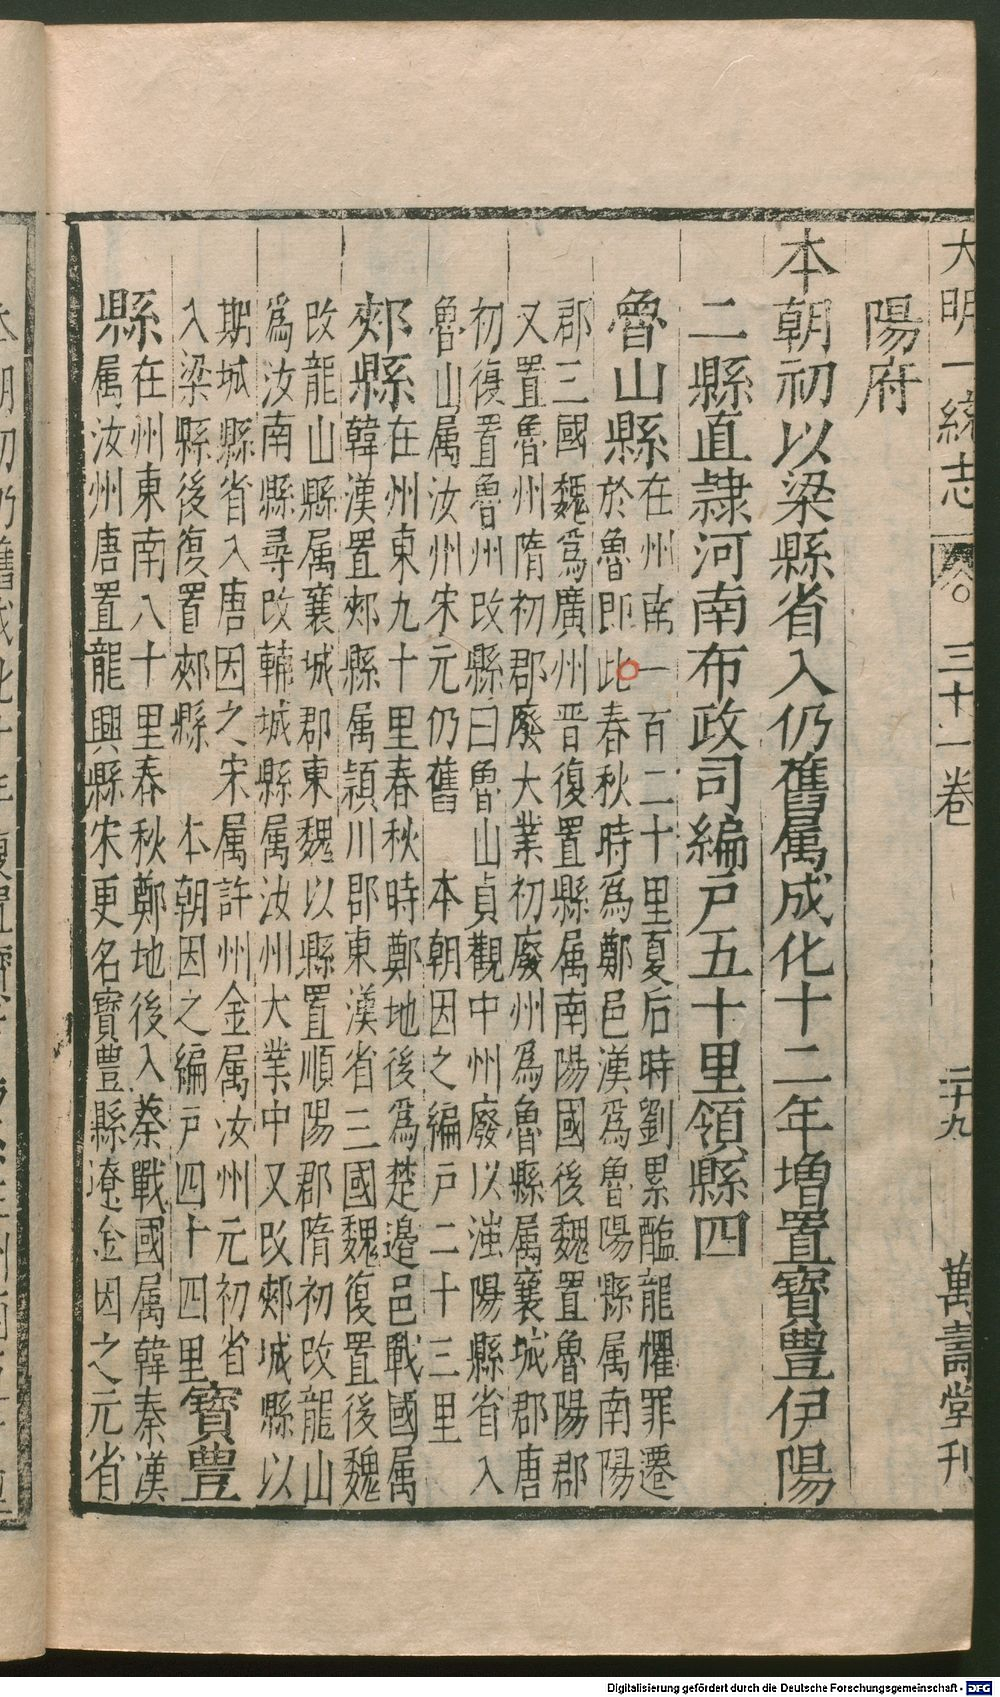 大明一統志 卷 三十一卷 二十九 萬壽堂刊
陽府
本朝初以梁縣省入仍舊属成化十二年增置寳豊伊陽
二縣直隷河南布政司編戸五十里領縣四
魯山縣在州南一百二十里夏后時劉累醢龍懼罪遷
於魯即此春秋時爲鄭邑漢爲魯陽縣属南陽
郡三國魏爲廣州晋復置縣属南陽國後魏置魯陽郡
又置魯州隋初郡廢大業初廢州爲魯縣属襄城郡唐
初復置魯州改縣曰魯山貞觀中州廢以滍陽縣省入
魯山属汝州宋元仍舊 本朝因之編戸二十三里
郟縣在州東九十里春秋時鄭地後爲楚邉邑戰國属
韓漢置郟縣属頴川郡東漢省三國魏復置後魏
改龍山縣属襄城郡東魏以縣置順陽郡隋初改龍山
爲汝南縣尋改輔城縣属汝州大業中又改郟城縣以
期城縣省入唐因之宋属許州金属汝州元初省
入梁縣後復置郟縣 本朝因之編戸四十四里寳豊
縣在州東南八十里春秋鄭地後入蔡戰國属韓秦漢
属汝州唐置龍興縣宋更名寳豊縣遼金因之元省
Digitalisierung gefördert durch die Deutsche Forschungsgemeinschaft - DFG